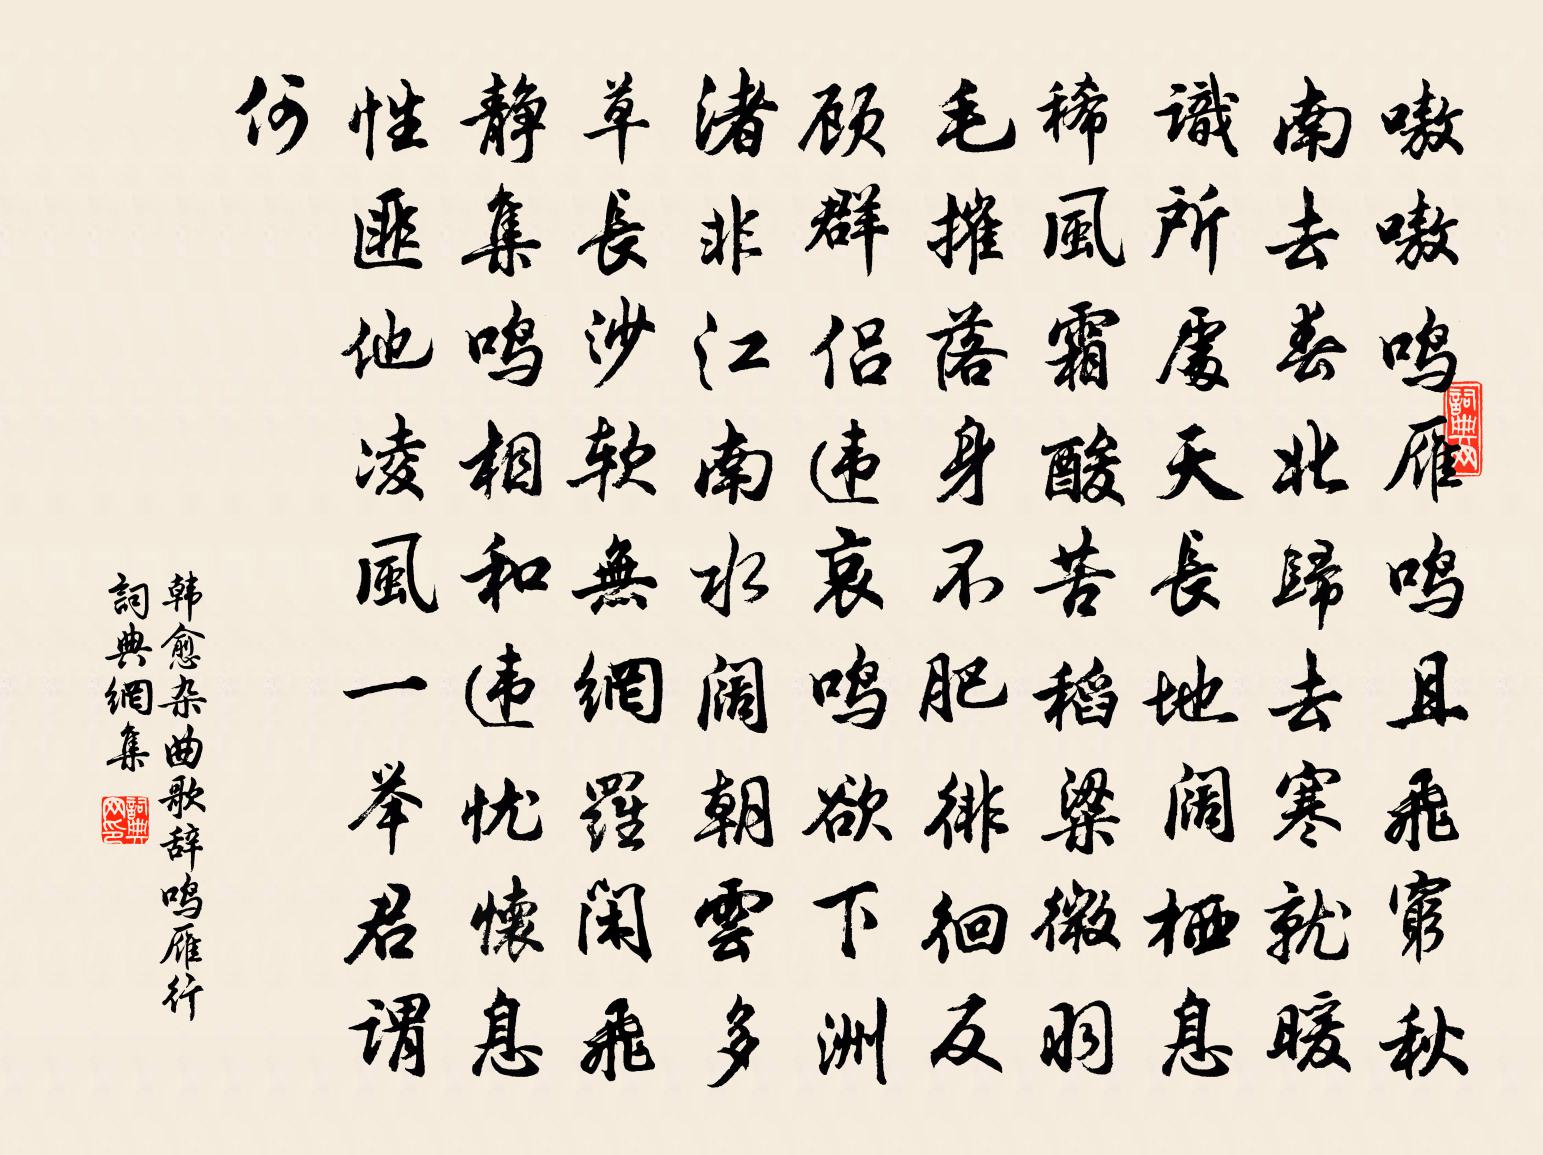 嗷嗷鸣雁鸣且飛窮秋
南去春北歸去寒就暖
識所處天長地阔栖息
稀風霜酸苦稻粱微羽
毛摧落身不肥徘徊反
顾群侣违哀鸣欲下洲
渚非江南水阔朝雲多
草長沙软無網羅闲飛
静集鸣相和违忧懷息
性匪他凌風一举君谓
何
韩愈杂曲歌辞鸣雁行
詞典網集
詞典网
詞典网印